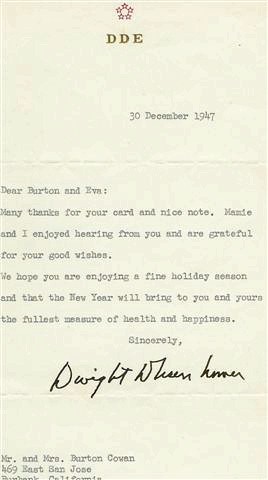 DDE
30 December 1947
Dear Burton and Eva:
Many thanks for your card and nice note. Mamie
and I enjoyed hearing from you and are grateful
for your good wishes.
We hope you are enjoying a fine holiday season
and that the New Year will bring to you and yours
the fullest measure of health and happiness.
Sincerely,
Dwight D Eisenhower
Mr. and Mrs. Burton Cowan
469 East San Jose
Burbank, California